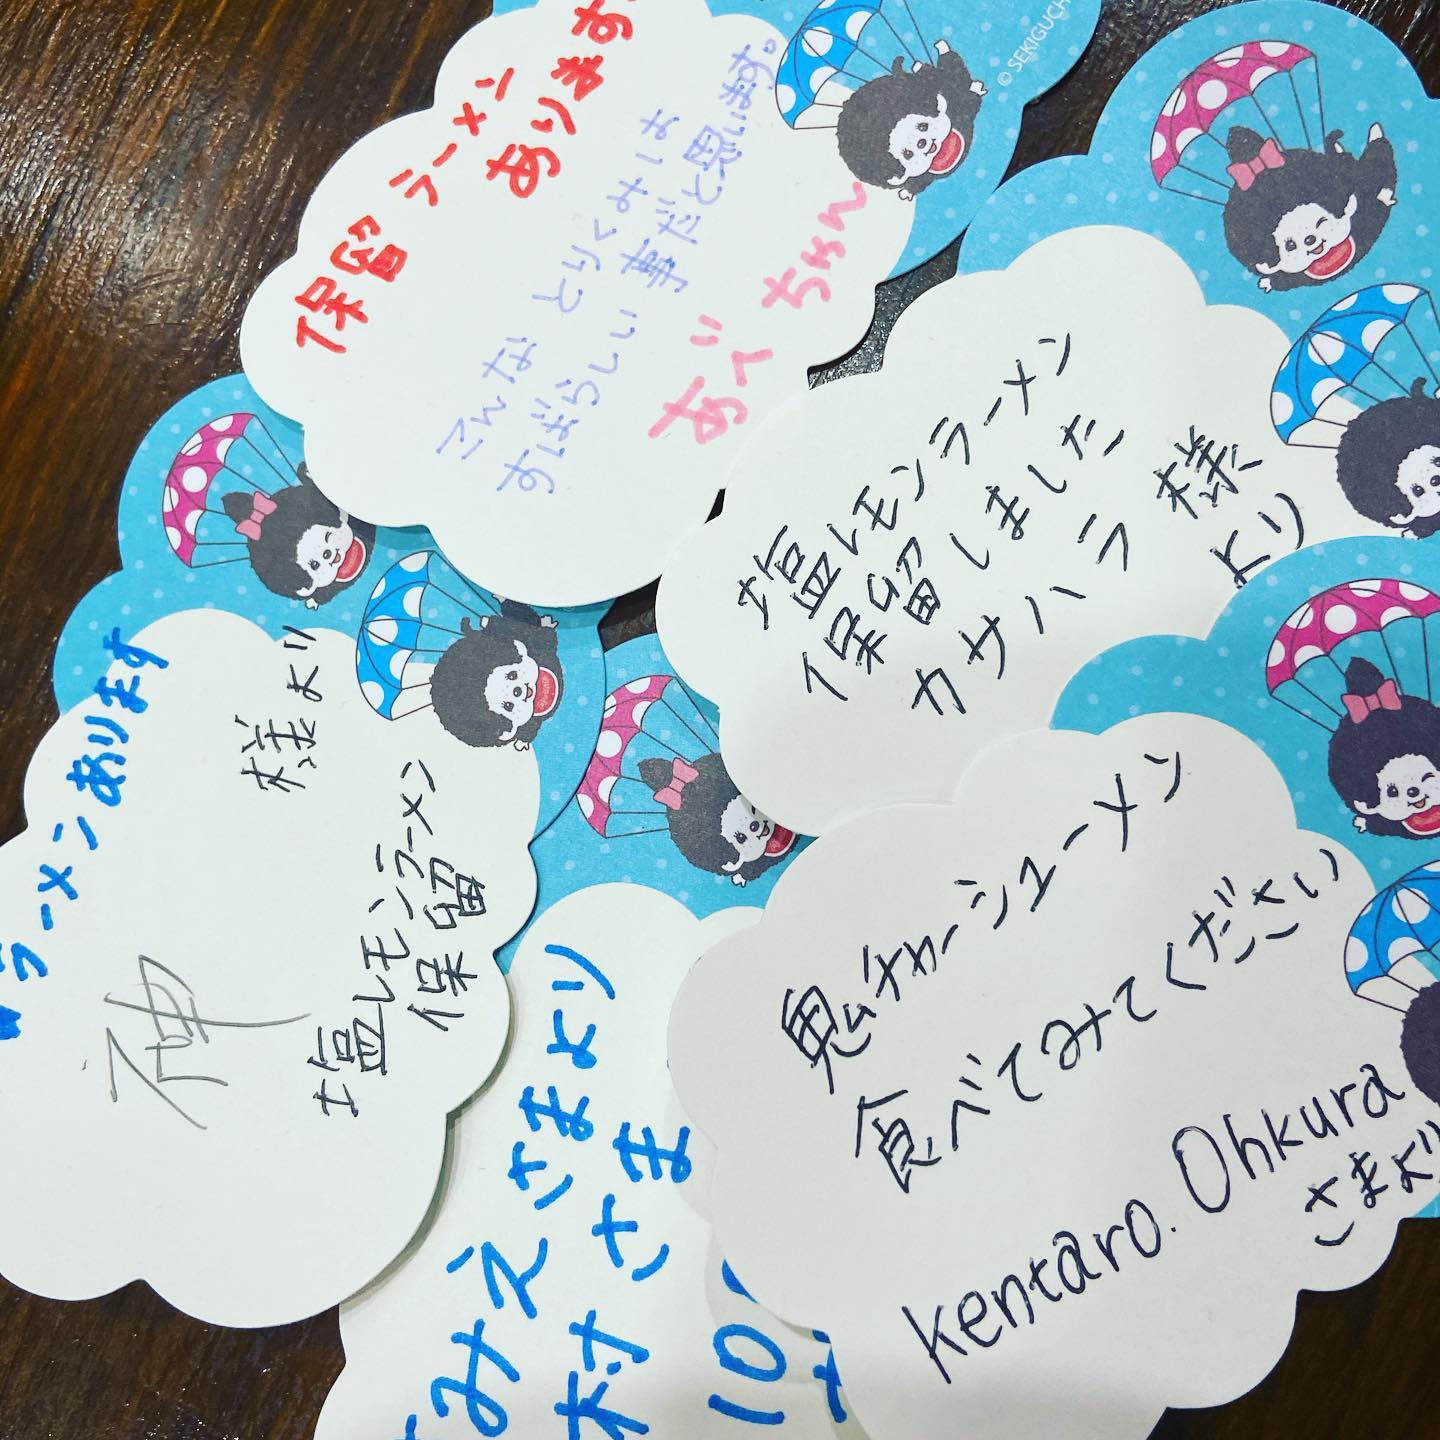 保留ラーメン
あります
こんなとりくみは
すばらしい事だと思います。
あべちゃん
© SEKIGUCH
塩レモンラーメン
保留しました
カサハラ様
より
ラーメンあります
様より
塩レモンラーメン
保留
みえさまより
村さま
10
鬼チャーシューメン
食べてみてください
kentaro. Ohkura
さまより